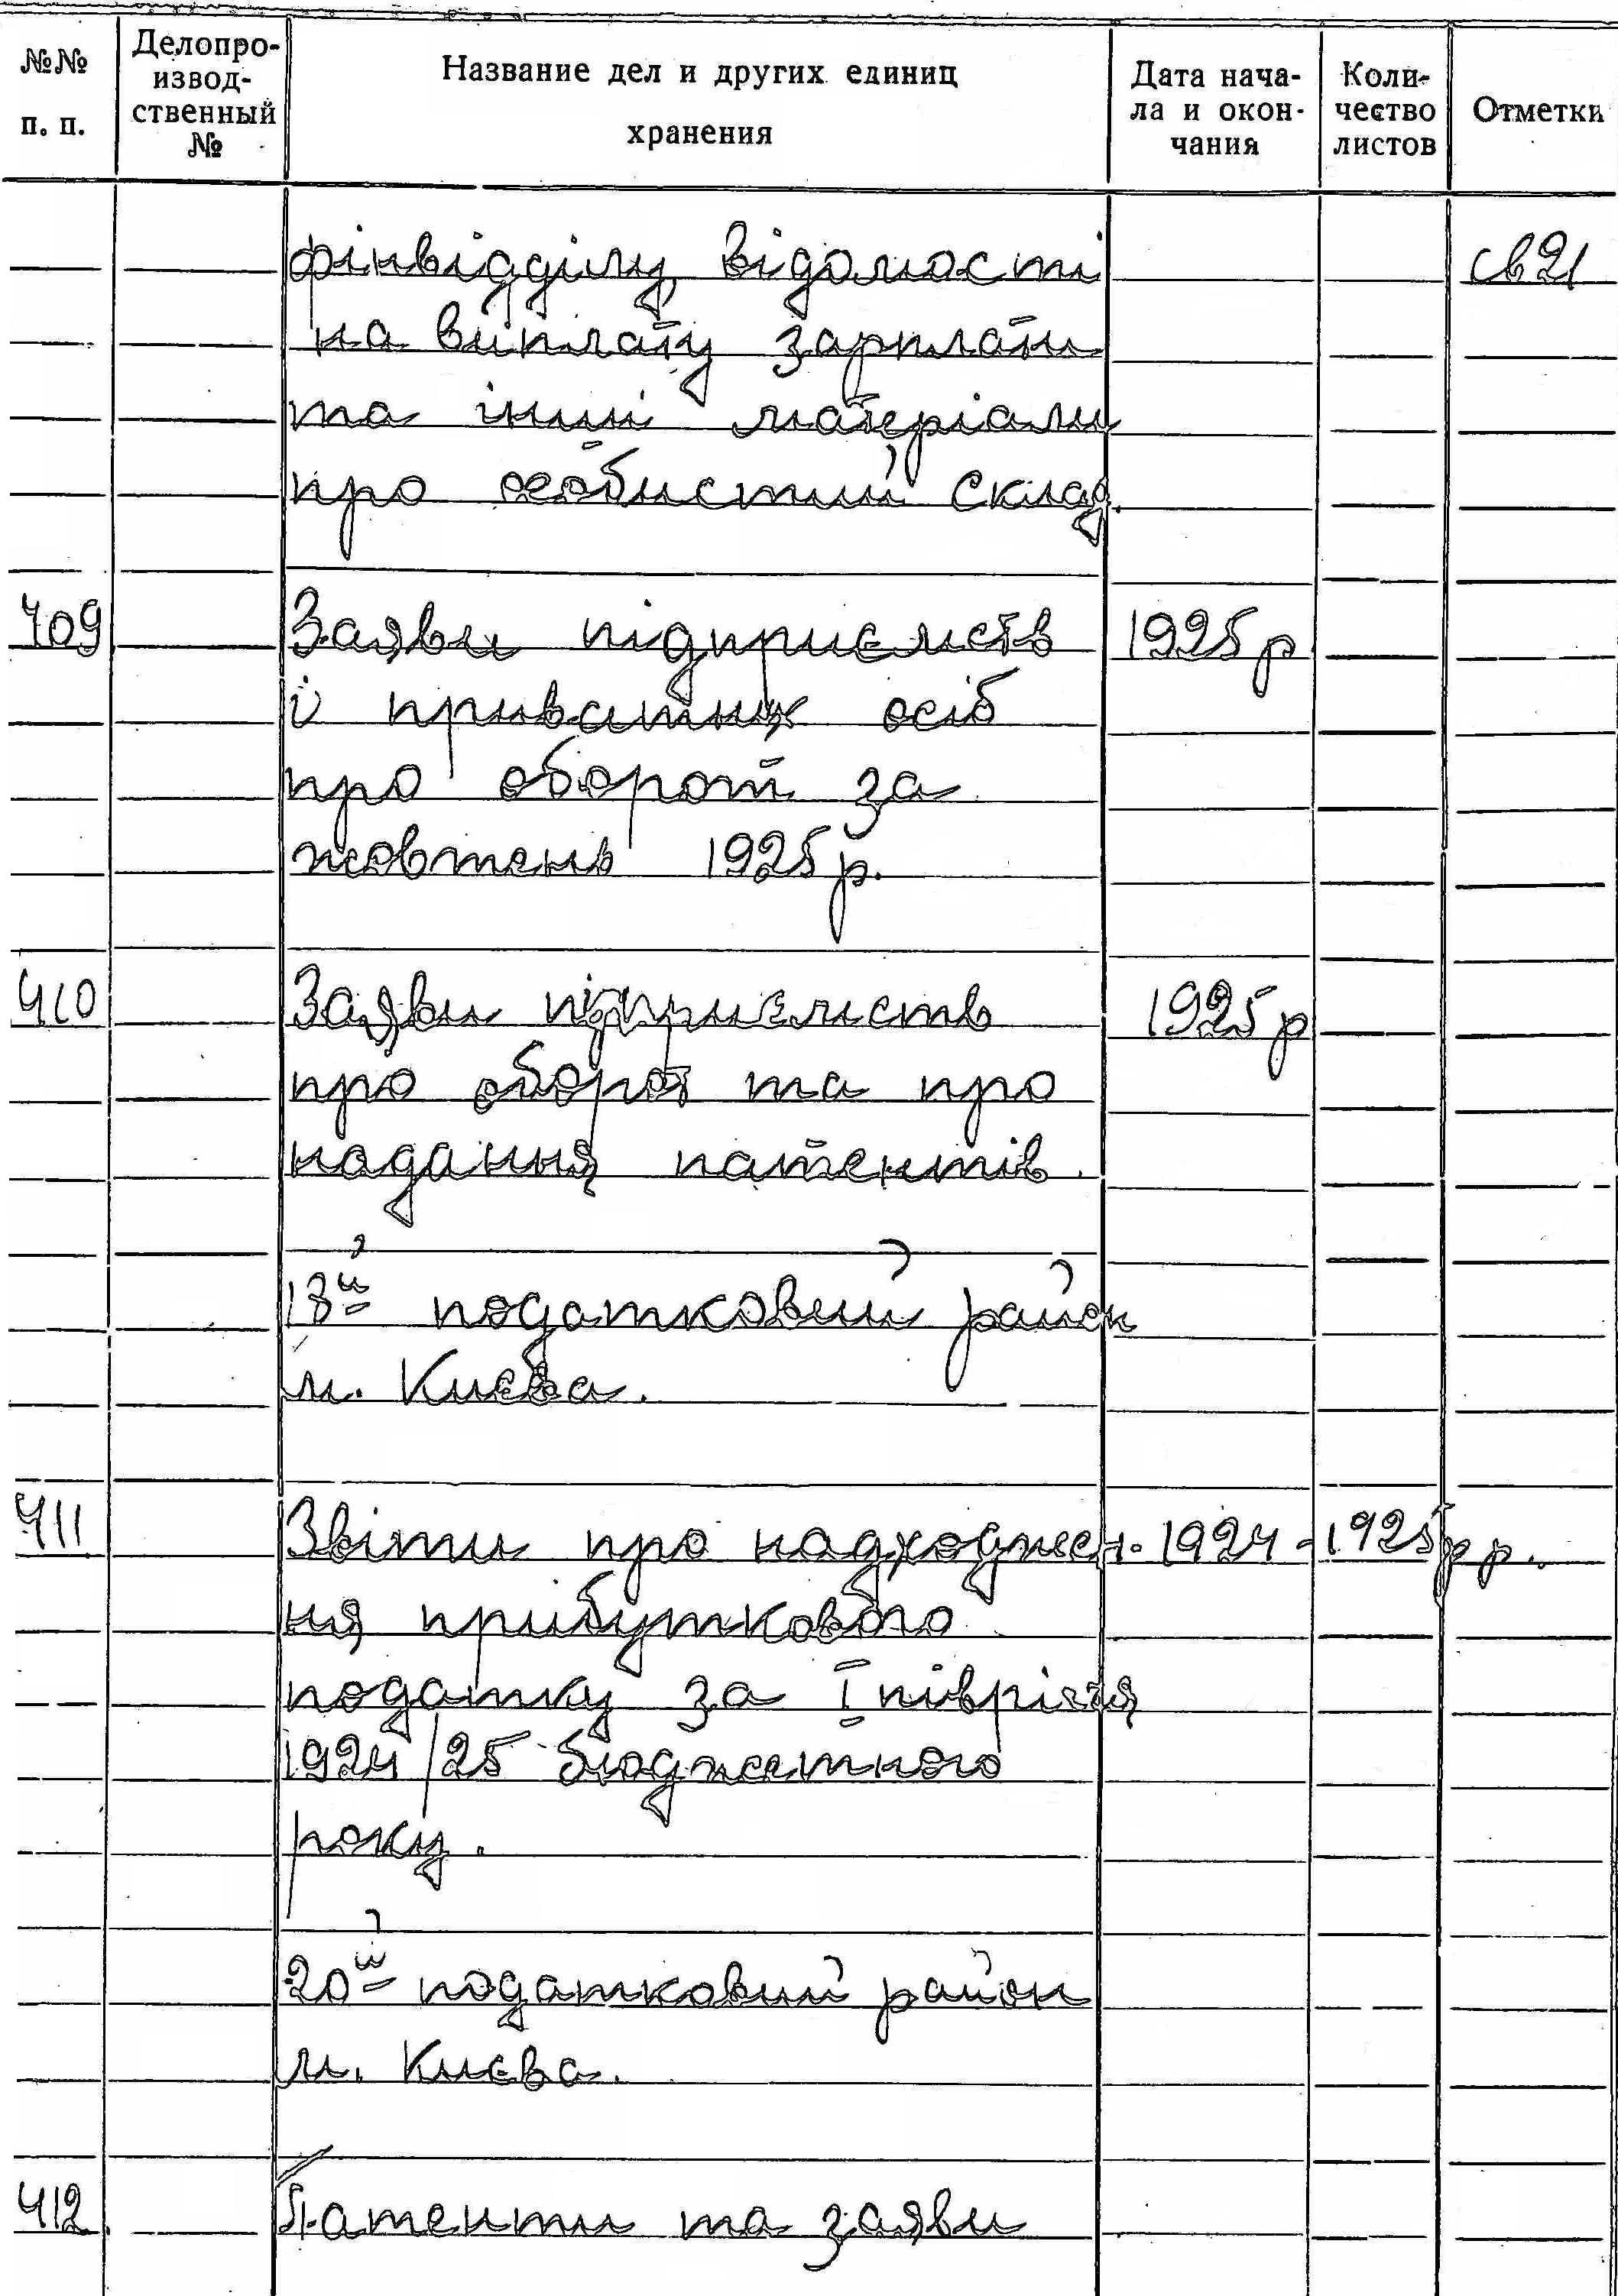 №№ п. п.
Делопро-
извод-
ственный
№
Название дел и других единиц
хранения
Дата нача-
ла и окон-
чания
Коли-
чество
листов
Отметки
фінвідділу, відомості св 21
на виплату зарплати
та інші матеріали
про особистий склад.
409 Заяви підприємств 1925 р
і приватних осіб
про оборот за
жовтень 1925 р.
410 Заяви підприємств 1925 р
про оборот та про
надання патентів.
18й податковий район
м. Києва.
411 Звіти про надходжен- 1924-1925 р р.
ня прибуткового
податку за I півріччя
1924/25 бюджетного
року.
20й податковий район
м. Києва.
412 Патенти та заяви